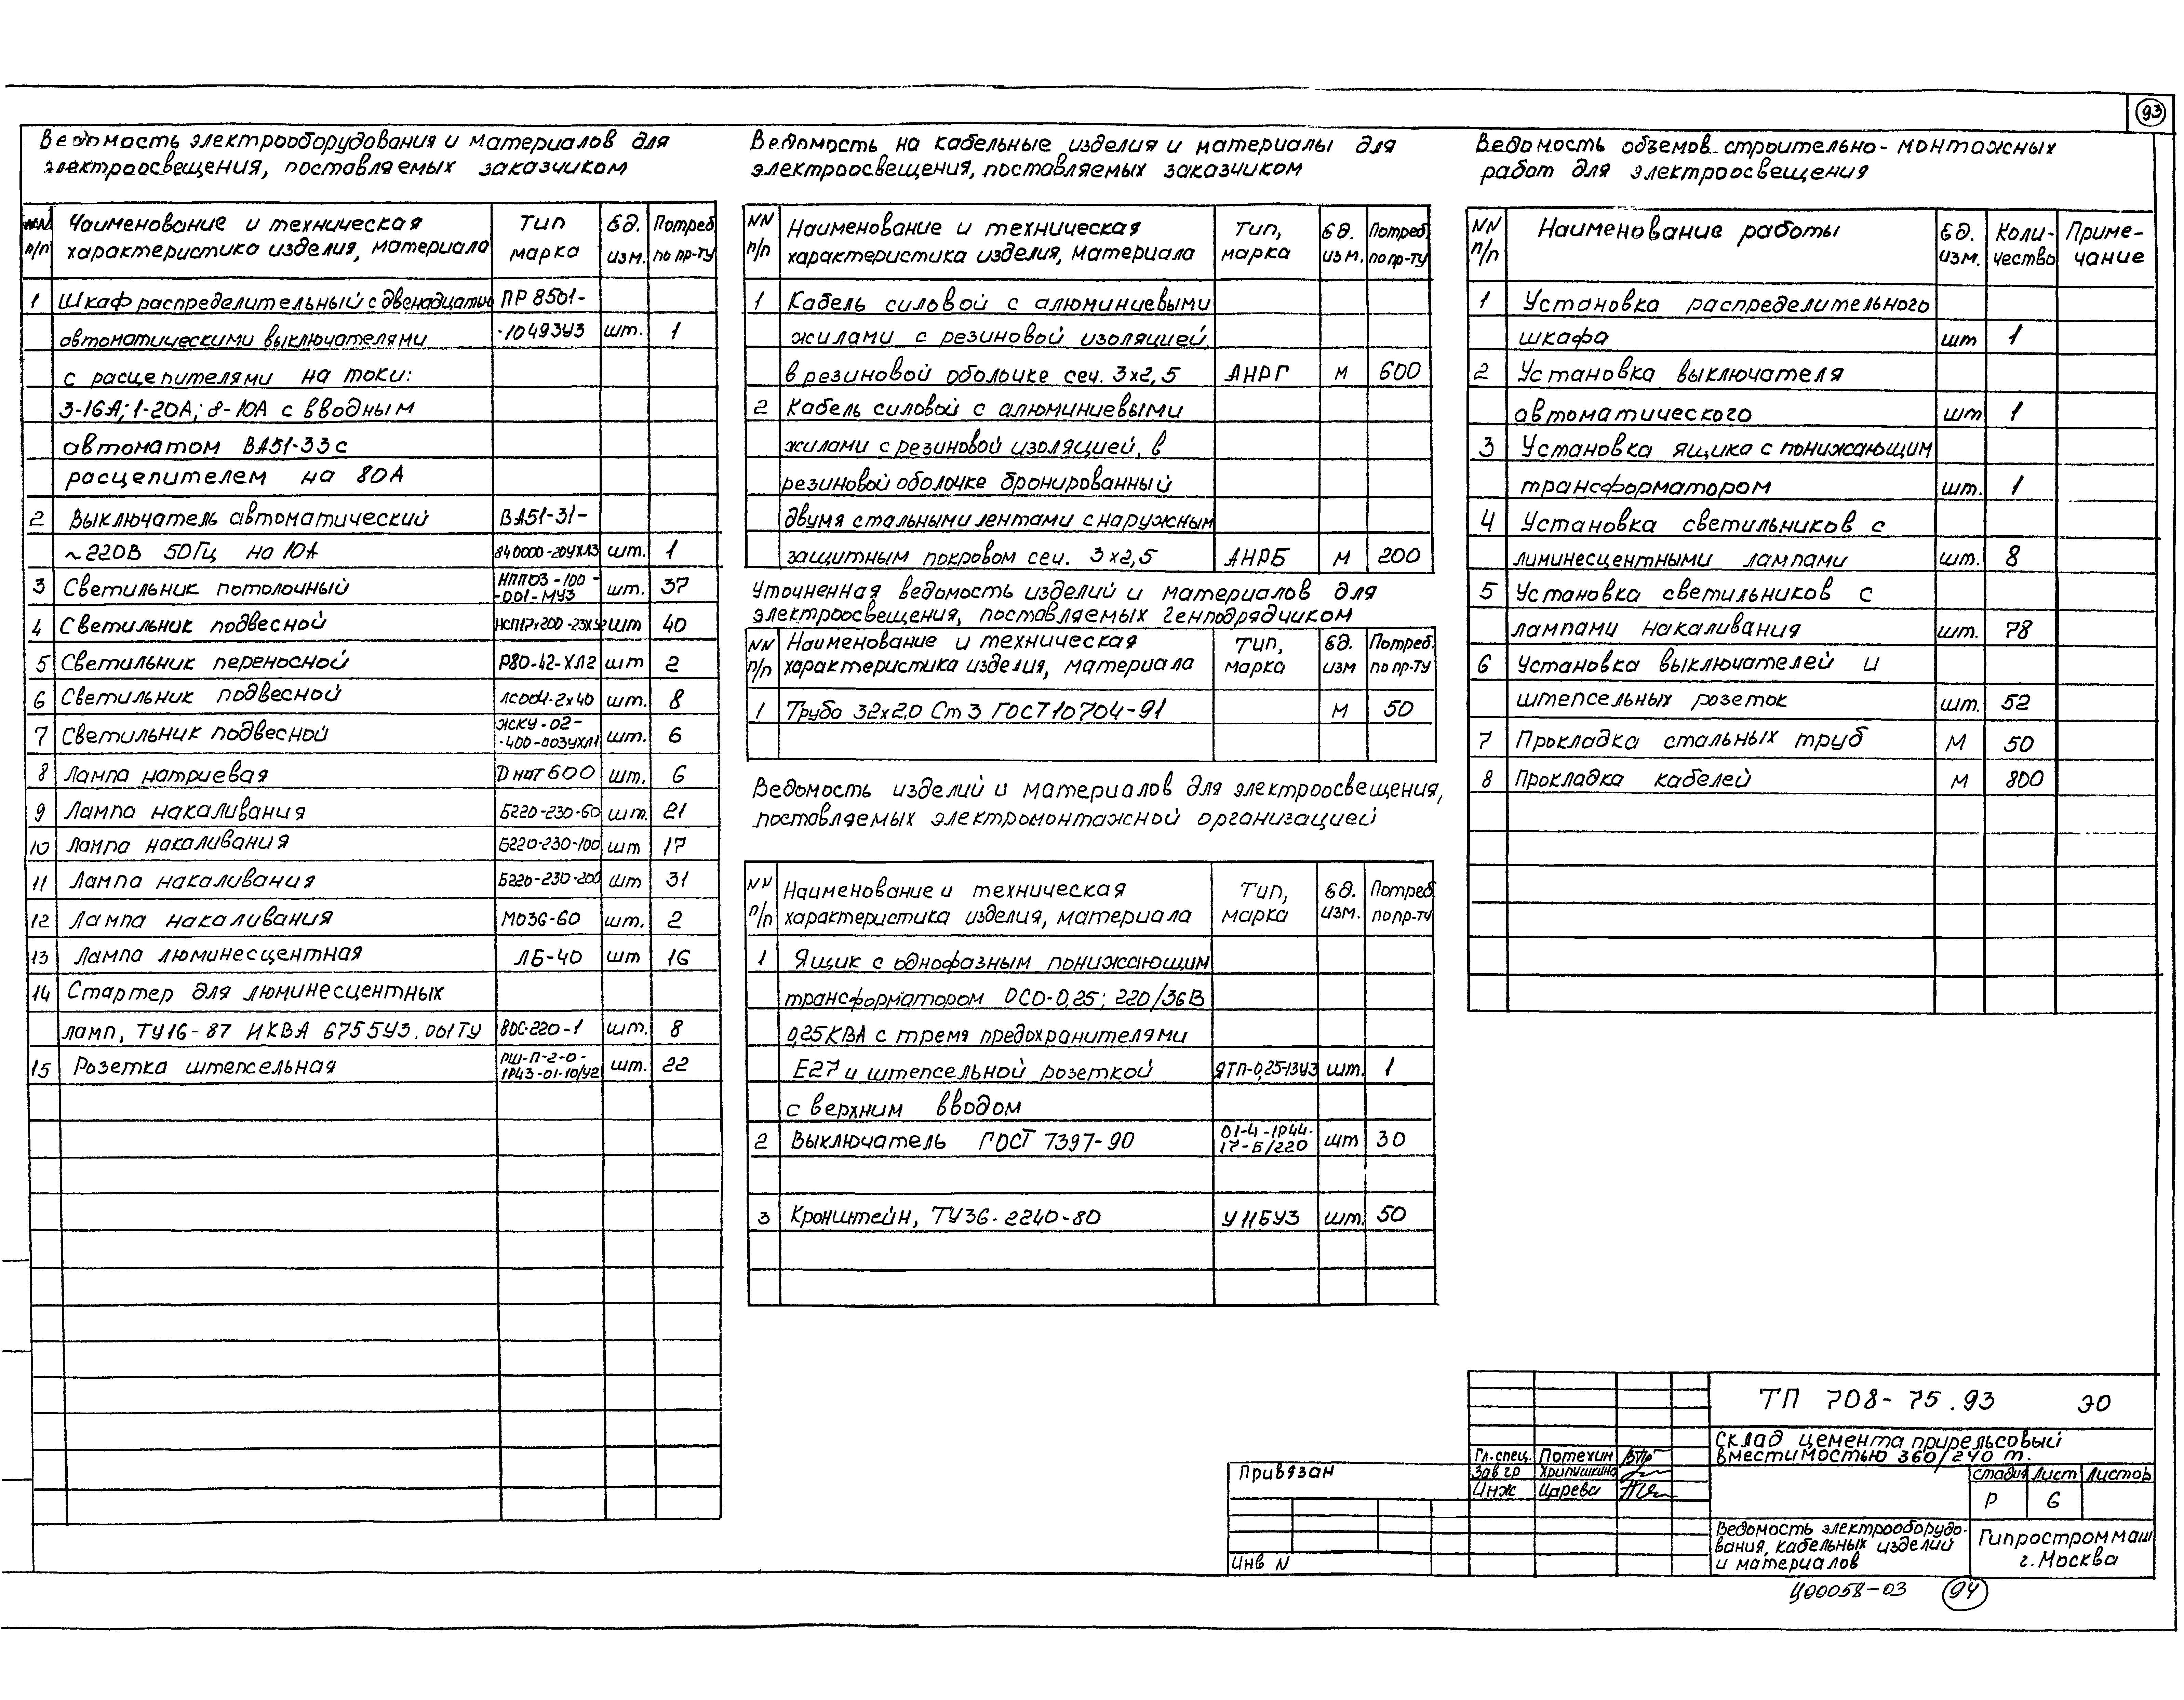 93
Ведомость электрооборудования и материалов для
электроосвещения, поставляемых заказчиком
NN п/п | Наименование и техническая характеристика изделия, материала | Тип марка | Ед. изм. | Потреб. по пр-ту
1 Шкаф распределительный с двенадцатью ПР 8501-
автоматическими выключателями -1049 3У3 шт. 1
с расцепителями на токи:
3-16А; 1-20А; 8-10А с вводным
автоматом ВА51-33 с
расцепителем на 80А
2 Выключатель автоматический ВА51-31-
~220В 50Гц на 10А 840000-20УХЛ3 шт. 1
3 Светильник потолочный НПП03-100-001-МУ3 шт. 37
4 Светильник подвесной шт 40
5 Светильник переносной Р80-42-ХЛ2 шт 2
6 Светильник подвесной ЛСО04-2х40 шт. 8
7 Светильник подвесной ЖСКУ-02-
-400-003УХЛ1 шт. 6
8 Лампа натриевая ДнаТ 600 шт. 6
9 Лампа накаливания Б220-230-60 шт. 21
10 Лампа накаливания Б220-230-100 шт 17
11 Лампа накаливания Б220-230-200 шт 31
12 Лампа накаливания МО36-60 шт. 2
13 Лампа люминесцентная ЛБ-40 шт 16
14 Стартер для люминесцентных
ламп, ТУ16-87 ИКВА 675543.001ТУ 80С-220-1 шт. 8
15 Розетка штепсельная РШ-П-2-0-
1Р43-01-10/У2 шт. 22
Ведомость на кабельные изделия и материалы для
электроосвещения, поставляемых заказчиком
NN п/п | Наименование и техническая характеристика изделия, материала | Тип, марка | Ед. изм. | Потреб. по пр-ту
1 Кабель силовой с алюминиевыми
жилами с резиновой изоляцией,
в резиновой оболочке сеч. 3х2,5 АНРГ м 600
2 Кабель силовой с алюминиевыми
жилами с резиновой изоляцией, в
резиновой оболочке бронированный
двумя стальными лентами с наружным
защитным покровом сеч. 3х2,5 АНРБ м 200
Уточненная ведомость изделий и материалов для
электроосвещения, поставляемых генподрядчиком
NN п/п | Наименование и техническая характеристика изделия, материала | Тип, марка | Ед. изм | Потреб. по пр-ту
1 Труба 32х2,0 Ст 3 ГОСТ 10704-91 м 50
Ведомость изделий и материалов для электроосвещения,
поставляемых электромонтажной организацией
NN п/п | Наименование и техническая характеристика изделия, материала | Тип, марка | Ед. изм. | Потреб. по пр-ту
1 Ящик с однофазным понижающим
трансформатором ОСО-0,25; 220/36В
0,25КВА с тремя предохранителями
Е27 и штепсельной розеткой ЯТП-0,25-13У3 шт. 1
с верхним вводом
2 Выключатель ГОСТ 7397-90 01-4-1Р44-
17-Б/220 шт 30
3 Кронштейн, ТУ36-2240-80 У116У3 шт. 50
Ведомость объемов строительно-монтажных
работ для электроосвещения
NN п/п | Наименование работы | Ед. изм. | Коли-чество | Приме-чание
1 Установка распределительного
шкафа шт 1
2 Установка выключателя
автоматического шт 1
3 Установка ящика с понижающим
трансформатором шт. 1
4 Установка светильников с
лиминесцентными лампами шт. 8
5 Установка светильников с
лампами накаливания шт. 78
6 Установка выключателей и
штепсельных розеток шт. 52
7 Прокладка стальных труб м 50
8 Прокладка кабелей м 800
ТП 708-75.93 ЭО
Склад цемента прирельсовый
вместимостью 360/240 т.
Гл.спец. Потехин
Зав гр Хрипушкина
Инж Царева
Привязан
Инв N
Стадия Лист Листов
Р 6
Ведомость электрооборудо-
вания, кабельных изделий
и материалов
Гипростроммаш
г. Москва
Ц00058-03 94